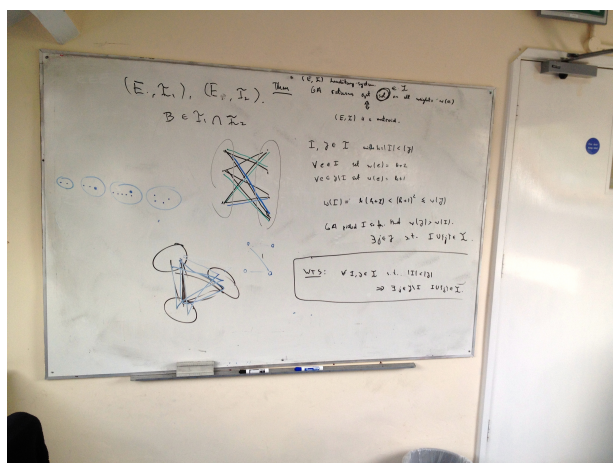 (E₁, I₁), (E₂, I₂).
B ∈ I₁ ∩ I₂
Thm (E, I) hereditary system
GA returns opt ∈ I on all weights w(e)
⇕
(E, I) is a matroid.
I, J ∈ I with k=|I|<|J|
∀e∈I set w(e) = k+2
∀e∈J\I set w(e) = k+1
w(I) = k(k+2) < (k+1)² ≤ w(J)
GA picked I so far but w(J) > w(I).
∃ j∈J s.t. I∪{j}∈I.
WTS: ∀ I, J ∈ I s.t. |I|<|J|
⇒ ∃ j∈J\I I∪{j}∈I